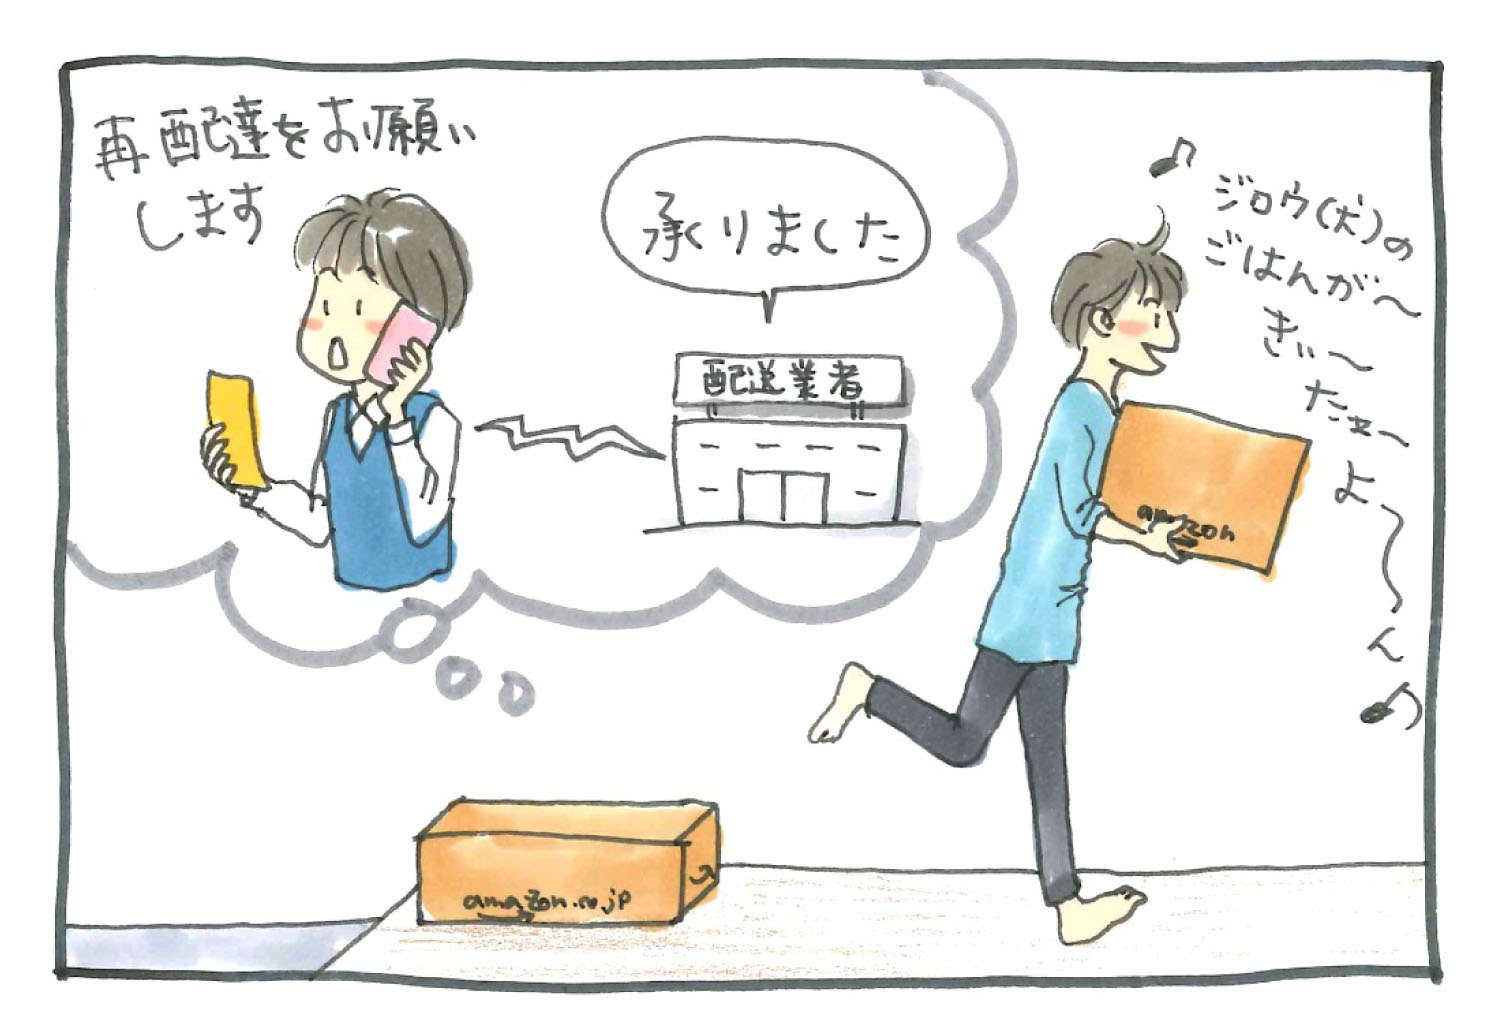 再配達をお願い
します
承りました
配送業者
ジロウ(犬)の
ごはんが～
きぃ～
たぁ～
よ～ん
amazon
amazon.co.jp